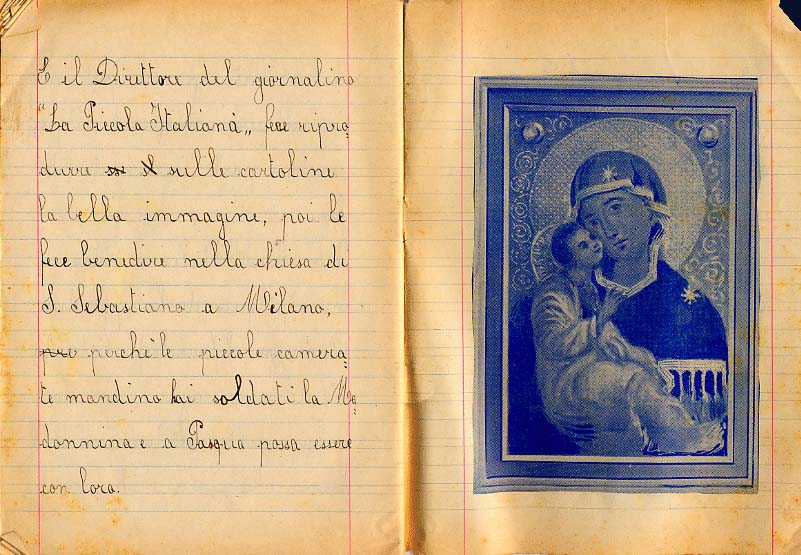 E il Direttore del giornalino
"La Piccola Italiana„ fece ripro=
durre sulle cartoline
la bella immagine, poi le
fece benedire nella chiesa di
S. Sebastiano a Milano,
pro perchè le piccole camera=
te mandino ai soldati la Ma=
donnina e a Pasqua possa essere
con loro.